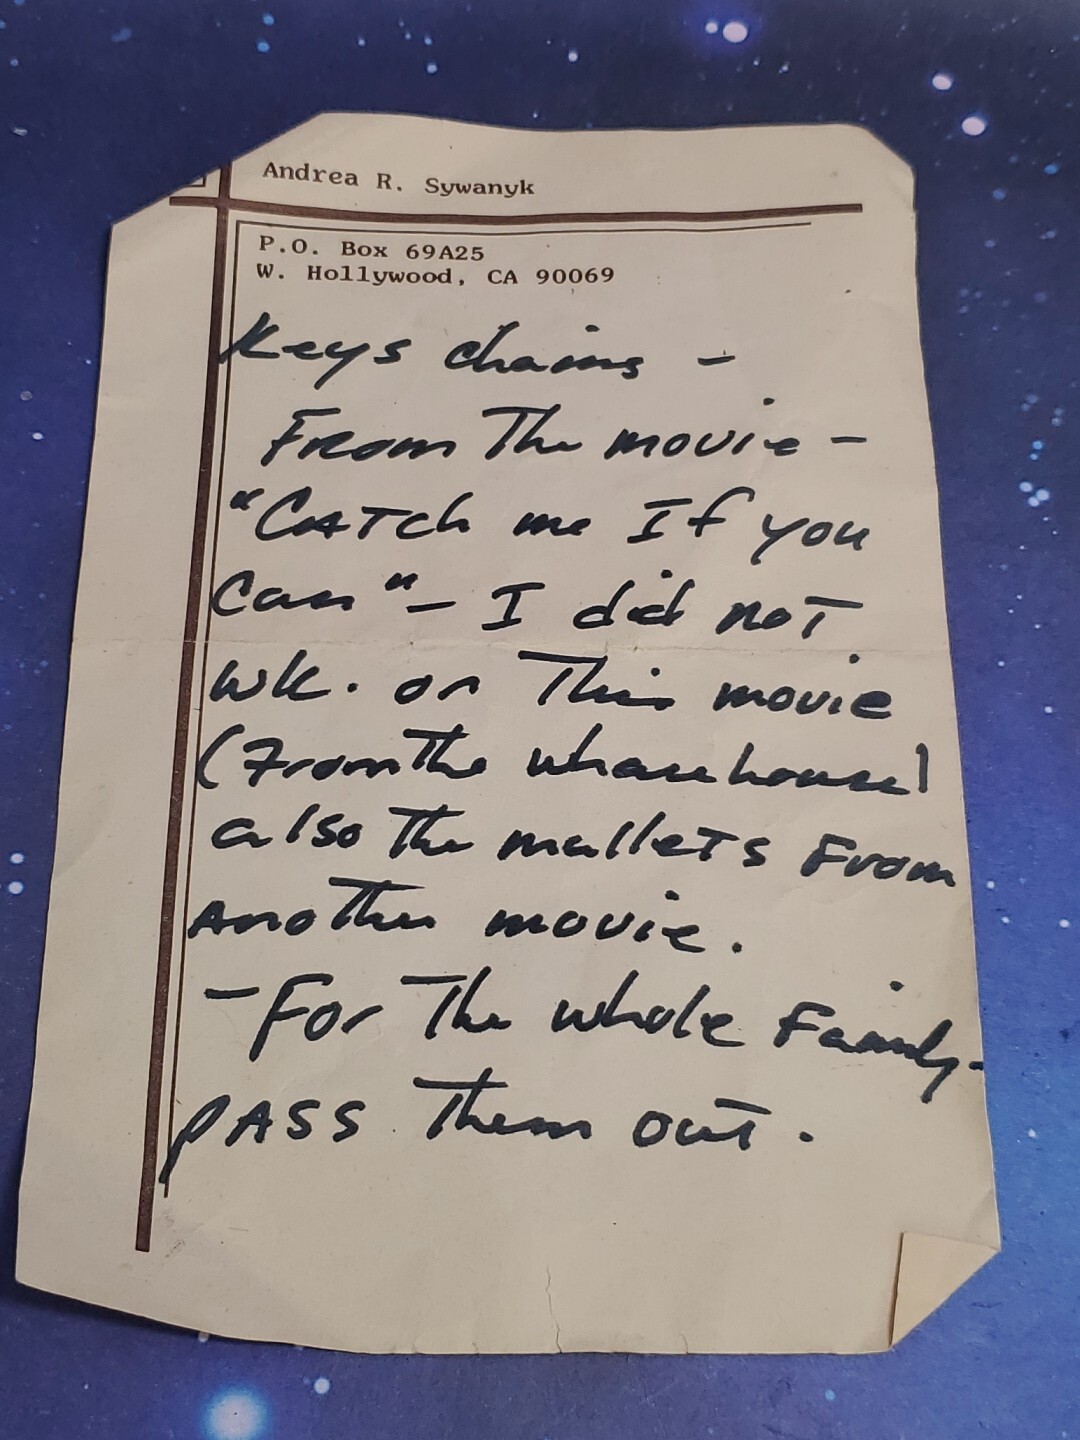 Andrea R. Sywanyk
P.O. Box 69A25
W. Hollywood, CA 90069
Keys chains -
From The movie -
"CATch me If you
Can" - I did noT
wk. on This movie
(From The wharehouse)
also The malleTs From
AnoTher movie.
- For The whole Family -
PASS Them ouT.